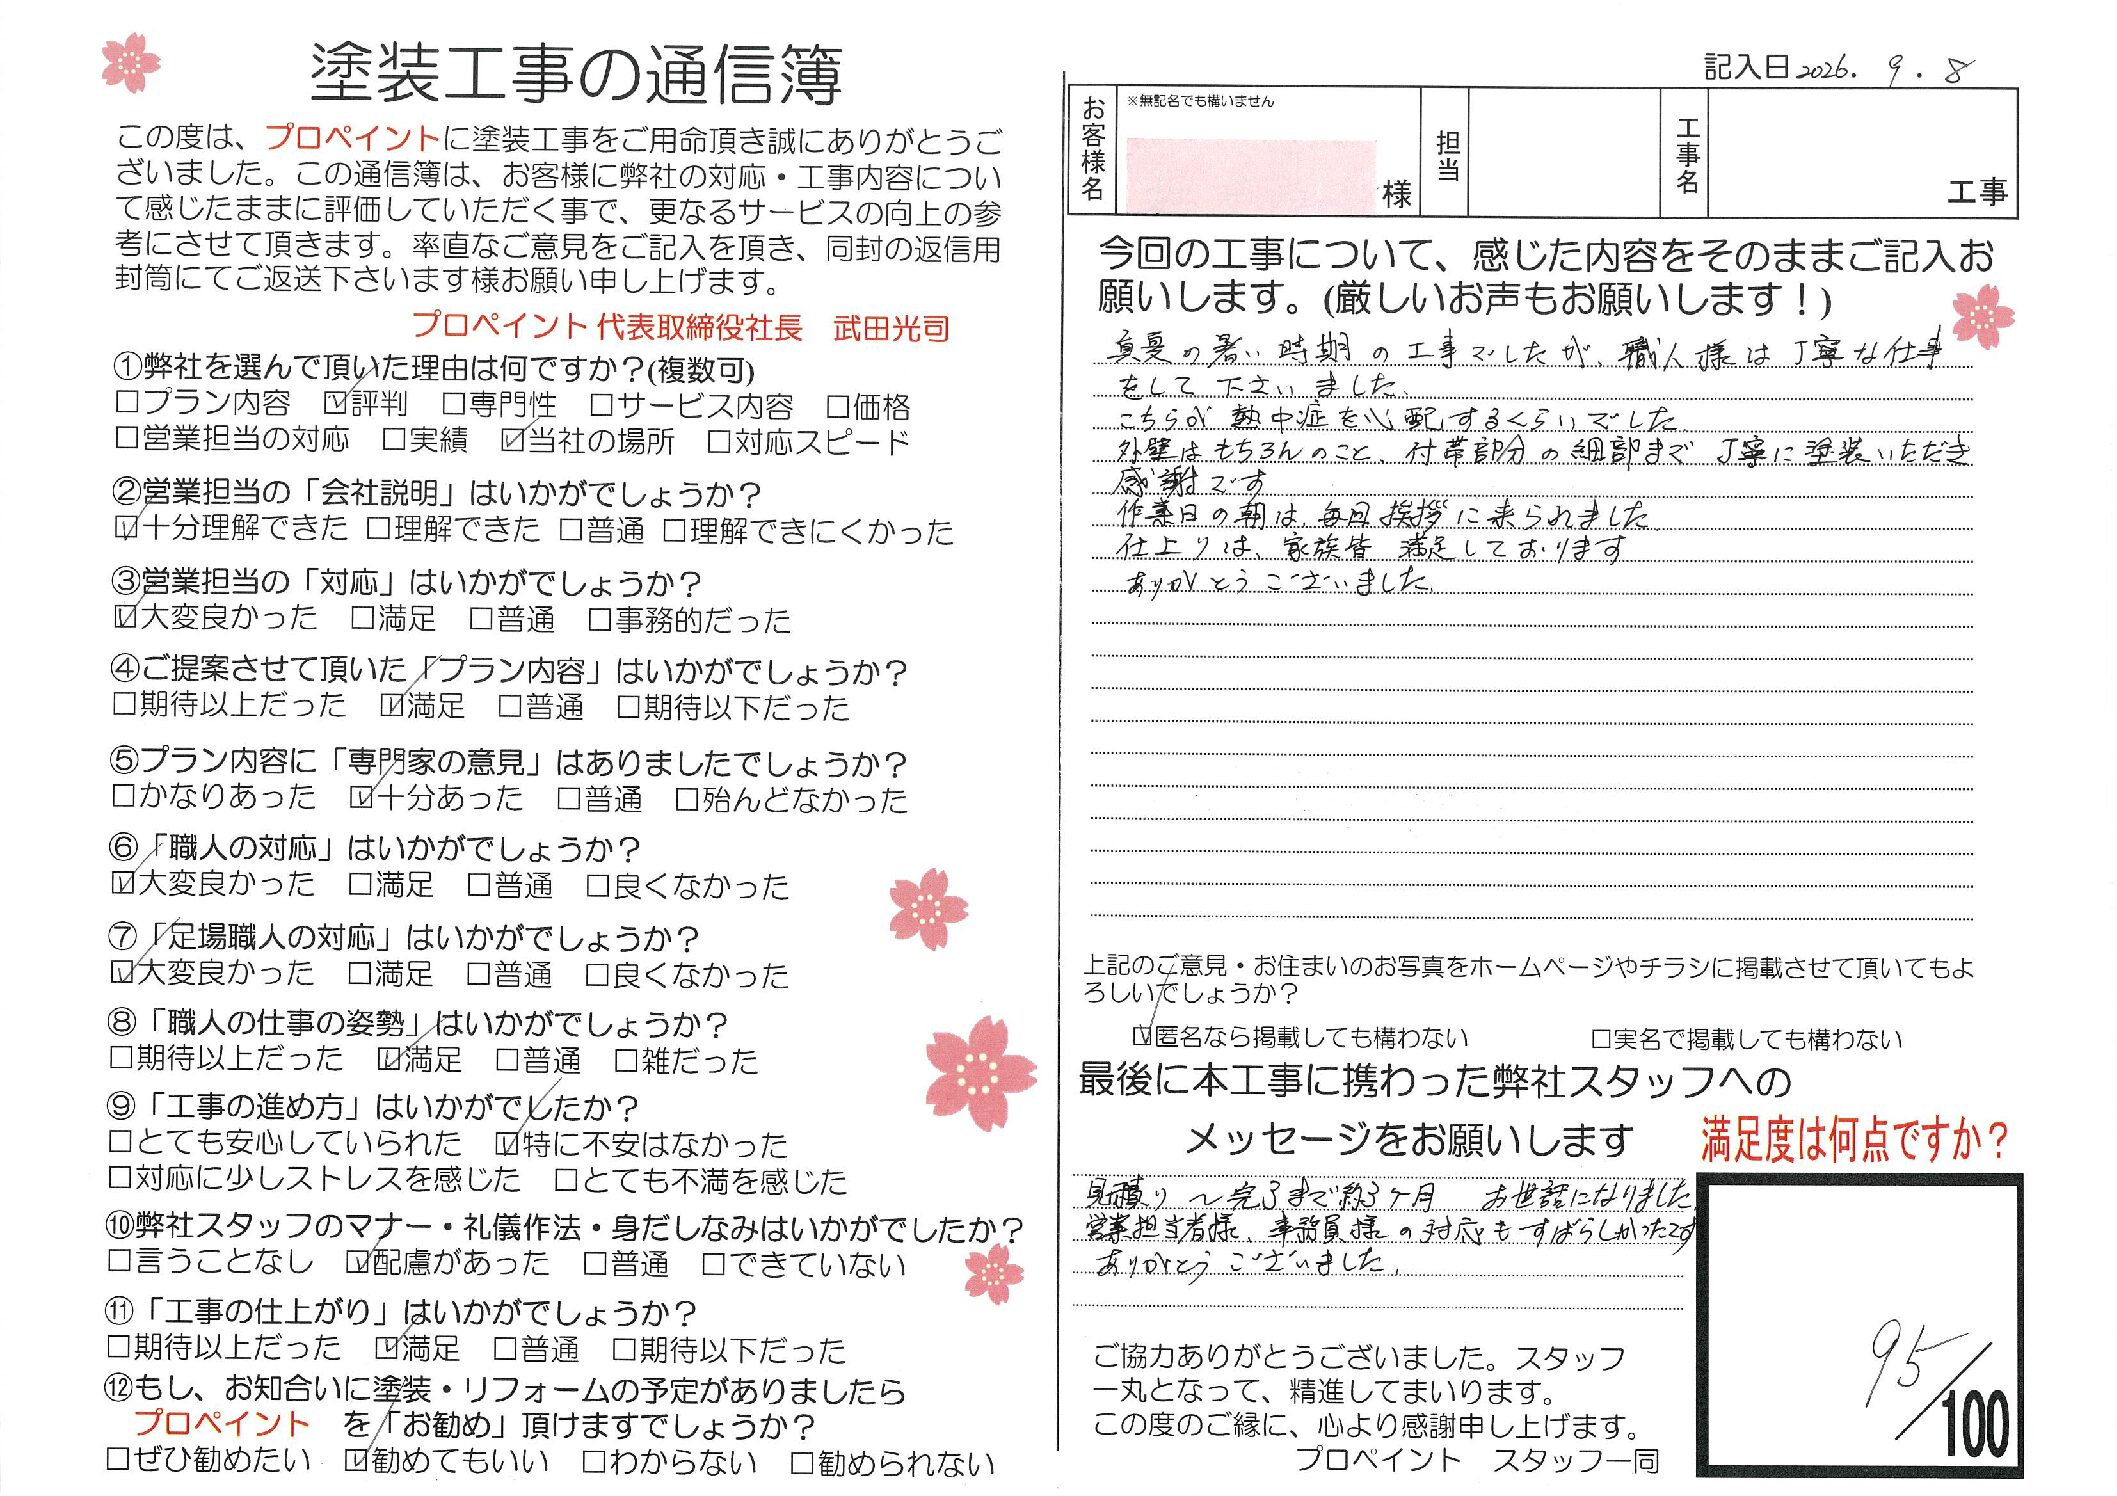 塗装工事の通信簿
この度は、プロペイントに塗装工事をご用命頂き誠にありがとうご
ざいました。この通信簿は、お客様に弊社の対応・工事内容につい
て感じたままに評価していただく事で、更なるサービスの向上の参
考にさせて頂きます。率直なご意見をご記入を頂き、同封の返信用
封筒にてご返送下さいます様お願い申し上げます。
プロペイント 代表取締役社長　武田光司
①弊社を選んで頂いた理由は何ですか？(複数可)
□プラン内容　☑評判　□専門性　□サービス内容　□価格
□営業担当の対応　□実績　☑当社の場所　□対応スピード
②営業担当の「会社説明」はいかがでしょうか？
☑十分理解できた □理解できた □普通 □理解できにくかった
③営業担当の「対応」はいかがでしょうか？
☑大変良かった　□満足　□普通　□事務的だった
④ご提案させて頂いた「プラン内容」はいかがでしょうか？
□期待以上だった　☑満足　□普通　□期待以下だった
⑤プラン内容に「専門家の意見」はありましたでしょうか？
□かなりあった　☑十分あった　□普通　□殆んどなかった
⑥「職人の対応」はいかがでしょうか？
☑大変良かった　□満足　□普通　□良くなかった
⑦「足場職人の対応」はいかがでしょうか？
☑大変良かった　□満足　□普通　□良くなかった
⑧「職人の仕事の姿勢」はいかがでしょうか？
□期待以上だった　☑満足　□普通　□雑だった
⑨「工事の進め方」はいかがでしたか？
□とても安心していられた　☑特に不安はなかった
□対応に少しストレスを感じた　□とても不満を感じた
⑩弊社スタッフのマナー・礼儀作法・身だしなみはいかがでしたか？
□言うことなし　☑配慮があった　□普通　□できていない
⑪「工事の仕上がり」はいかがでしょうか？
□期待以上だった　☑満足　□普通　□期待以下だった
⑫もし、お知合いに塗装・リフォームの予定がありましたら
プロペイント　を「お勧め」頂けますでしょうか？
□ぜひ勧めたい　☑勧めてもいい　□わからない　□勧められない
記入日 2026. 9. 8
お客様名 ※無記名でも構いません 様 担当 工事名 工事
今回の工事について、感じた内容をそのままご記入お
願いします。(厳しいお声もお願いします！)
真夏の暑い時期の工事でしたが、職人様は丁寧な仕事
をして下さいました。
こちらが熱中症を心配するくらいでした。
外壁はもちろんのこと、付帯部分の細部まで丁寧に塗装いただき
感謝です
作業日の朝は毎回挨拶に来られました
仕上りは、家族皆 満足しております
ありがとうございました。
上記のご意見・お住まいのお写真をホームページやチラシに掲載させて頂いてもよ
ろしいでしょうか？
☑匿名なら掲載しても構わない　□実名で掲載しても構わない
最後に本工事に携わった弊社スタッフへの
メッセージをお願いします
見積り～完了まで約3ヶ月　お世話になりました。
営業担当者様、事務員様の対応もすばらしかったです
ありがとうございました。
満足度は何点ですか？
95/100
ご協力ありがとうございました。スタッフ
一丸となって、精進してまいります。
この度のご縁に、心より感謝申し上げます。
プロペイント　スタッフ一同